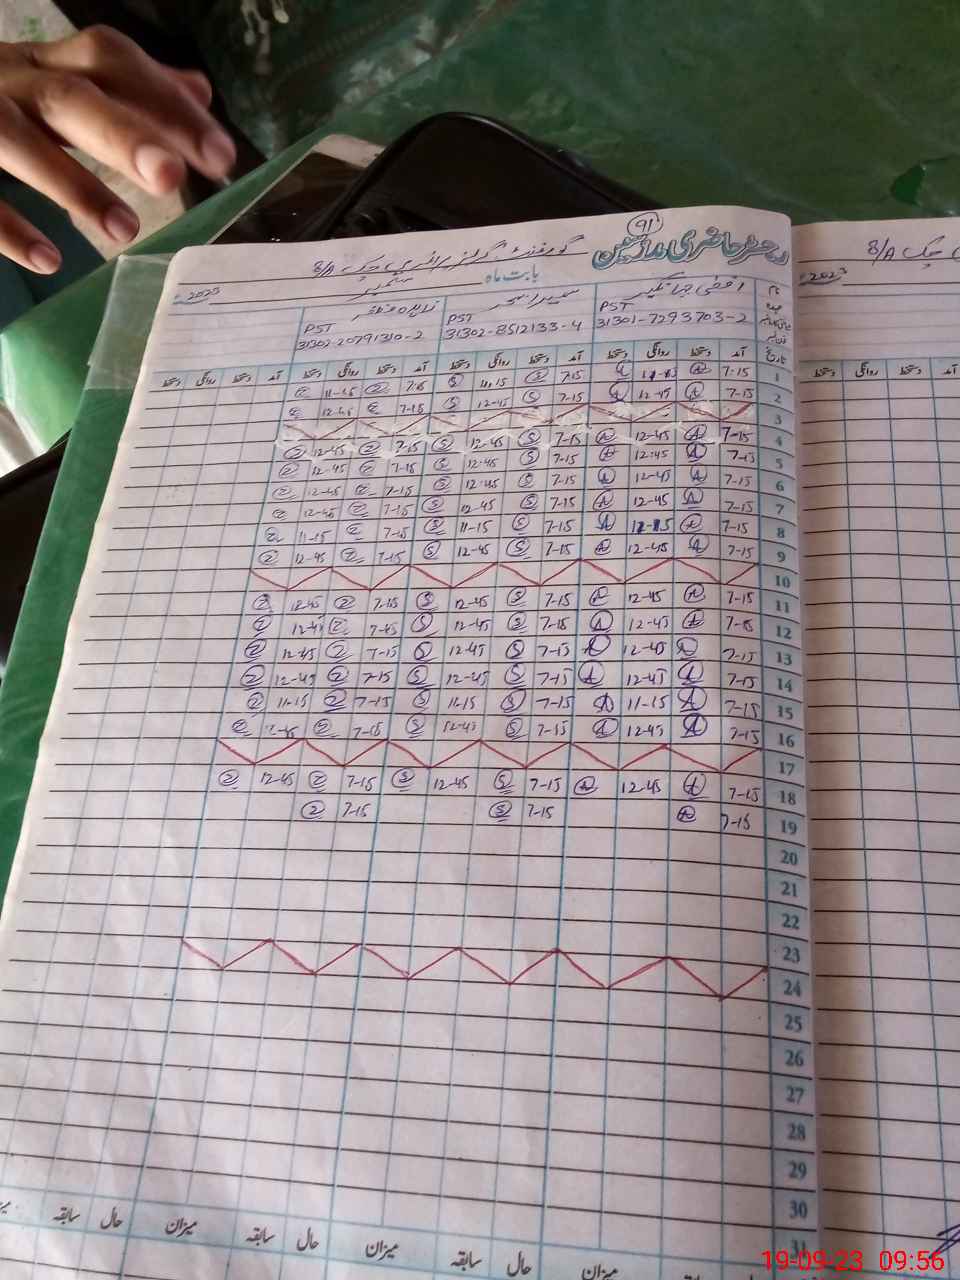 91
رجسٹر حاضری مدرسین
گورنمنٹ گرلز پرائمری چک 8/A
بابت ماہ ستمبر 2023ء
نام
PST PST PST
31301-7293703-2 31302-8512133-4 31302-20791310-2
تاریخ آمد دستخط روانگی دستخط آمد دستخط روانگی دستخط آمد دستخط روانگی دستخط روانگی دستخط
1 7-15 7-15 11-15 7-15 11-15
2 7-15 12-45 7-15 12-45 7-15 12-45
3
4 7-15 12-45 7-15 12-45 7-15 12-45
5 7-15 12-45 7-15 12-45 7-15 12-45
6 7-15 12-45 7-15 12-45 7-15 12-45
7 7-15 12-45 7-15 12-45 7-15 12-45
8 7-15 7-15 11-15 7-15 11-15
9 7-15 12-45 7-15 12-45 7-15 12-45
10
11 7-15 12-45 7-15 12-45 7-15 12-45
12 7-15 12-45 7-15 12-45 7-45 12-45
13 7-15 12-45 7-15 12-45 7-15 12-45
14 7-15 12-45 7-15 12-45 7-15 12-45
15 7-15 11-15 7-15 11-15 7-15 11-15
16 7-15 12-45 7-15 12-45 7-15 12-45
17
18 7-15 12-45 7-15 12-45 7-15 12-45
19 7-15 7-15 7-15
20
21
22
23
24
25
26
27
28
29
30
31
میزان حال سابقہ میزان حال سابقہ میزان حال سابقہ
8/A چک
2023ء
آمد دستخط روانگی دستخط
19-09-23 09:56